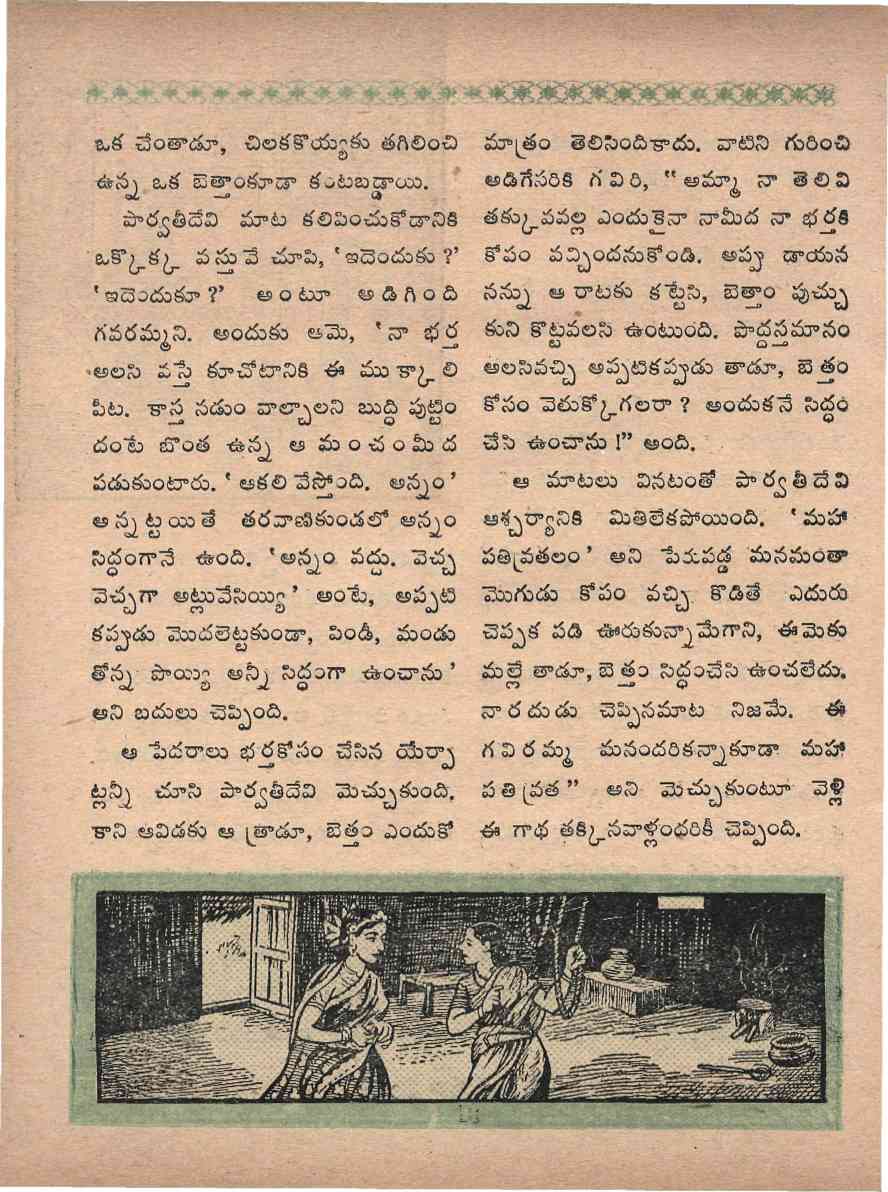 ఒక చేంతాడూ, చిలకకొయ్యకు తగిలించి
ఉన్న ఒక బెత్తాంకూడా కంటబడ్డాయి.
పార్వతీదేవి మాట కలిపించుకోడానికి
ఒక్కొక్క వస్తువే చూపి, ‘ఇదెందుకు?’
‘ఇదెందుకూ?’ అంటూ అడిగింది
గవరమ్మని. అందుకు ఆమె, ‘నా భర్త
అలసి వస్తే కూచోటానికి ఈ ముక్కాలి
పీట. కాస్త నడుం వాల్చాలని బుద్ధి పుట్టిం
దంటే బొంత ఉన్న ఆ మంచంమీద
పడుకుంటారు. ‘ఆకలి వేస్తోంది. అన్నం’
అన్నట్టయితే తరవాణికుండలో అన్నం
సిద్ధంగానే ఉంది. ‘అన్నం వద్దు. వెచ్చ
వెచ్చగా అట్లువేసియ్యి’ అంటే, అప్పటి
కప్పుడు మొదలెట్టకుండా, పిండీ, మండు
తోన్న పొయ్యి అన్నీ సిద్ధంగా ఉంచాను’
అని బదులు చెప్పింది.
ఆ పేదరాలు భర్తకోసం చేసిన యేర్పా
ట్లన్నీ చూసి పార్వతీదేవి మెచ్చుకుంది.
కాని ఆవిడకు ఆ త్రాడూ, బెత్తం ఎందుకో
మాత్రం తెలిసిందికాదు. వాటిని గురించి
అడిగేసరికి గవిరి, “అమ్మా నా తెలివి
తక్కువవల్ల ఎందుకైనా నామీద నా భర్తకి
కోపం వచ్చిందనుకోండి. అప్పు డాయన
నన్ను ఆ రాటకు కట్టేసి, బెత్తాం పుచ్చు
కుని కొట్టవలసి ఉంటుంది. పొద్దస్తమానం
అలసివచ్చి అప్పటికప్పుడు తాడూ, బెత్తం
కోసం వెతుక్కోగలరా? అందుకనే సిద్ధం
చేసి ఉంచాను!” అంది.
ఆ మాటలు వినటంతో పార్వతీదేవి
ఆశ్చర్యానికి మితిలేకపోయింది. ‘మహా
పతివ్రతలం’ అని పేరుపడ్డ మనమంతా
మొగుడు కోపం వచ్చి కొడితే ఎదురు
చెప్పక పడి ఊరుకున్నామేగాని, ఈమెకు
మల్లే తాడూ, బెత్తం సిద్ధంచేసి ఉంచలేదు.
నారదుడు చెప్పినమాట నిజమే. ఈ
గవిరమ్మ మనందరికన్నాకూడా మహా
పతివ్రత” అని మెచ్చుకుంటూ వెళ్లి
ఈ గాథ తక్కినవాళ్లందరికీ చెప్పింది.